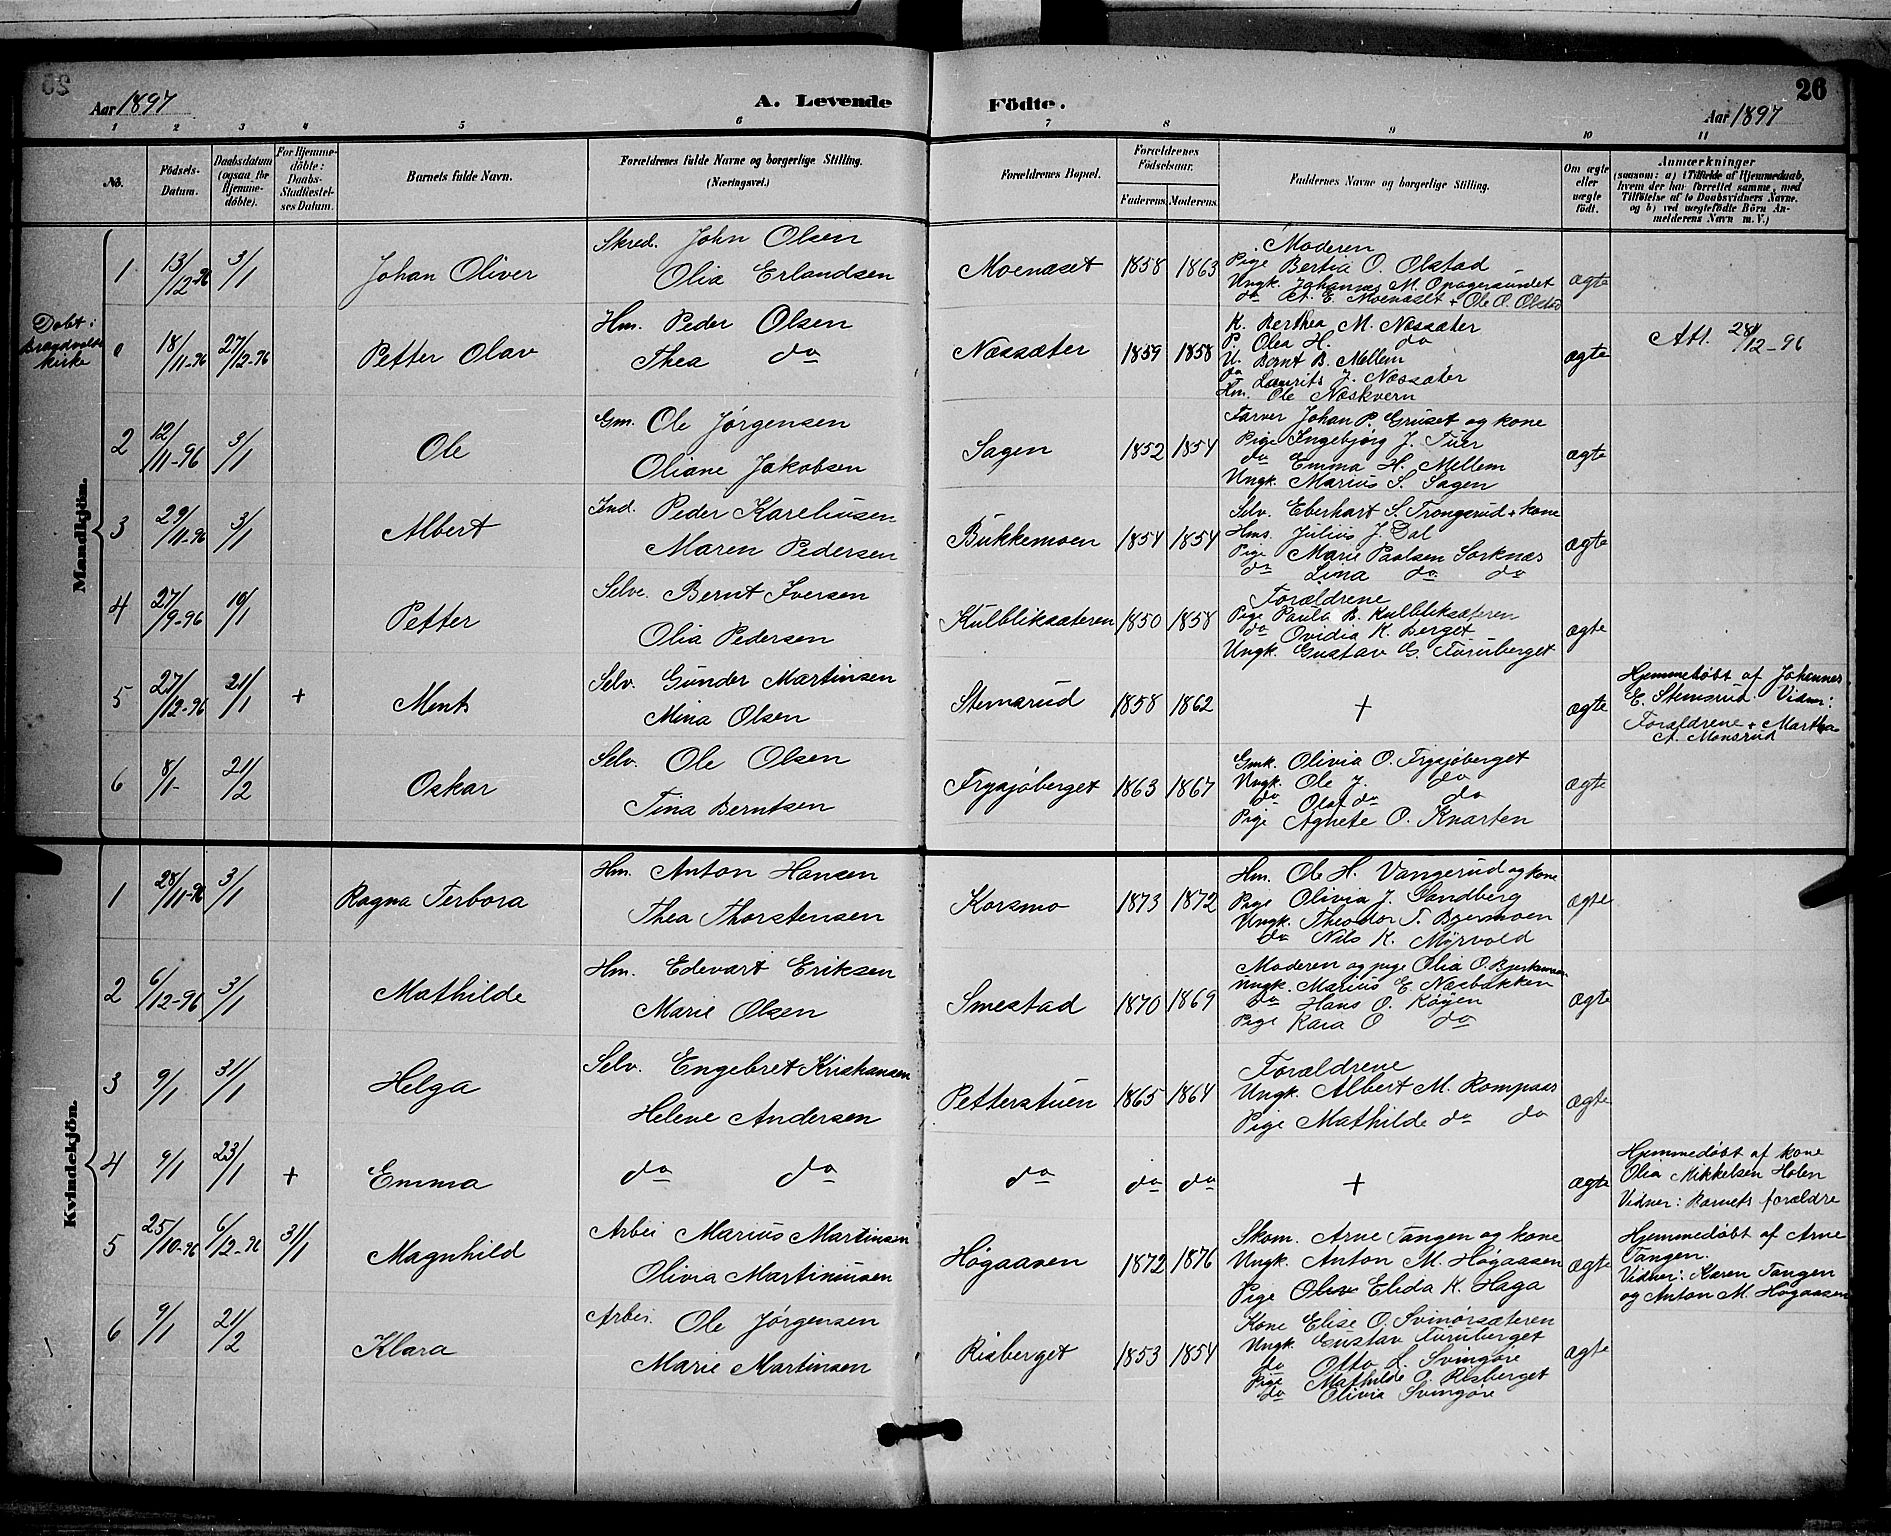 26
Aar 1897 A. Levende Födte. Aar 1897
1 2 3 4 5 6 7 8 9 10 11
No. Födsels-Datum. Daabsdatum (ogsaa for Hjemme-döbte). For Hjemme-döbte: Daabs-Stadfæstel-ses Datum. Barnets fulde Navn. Forældrenes fulde Navne og borgerlige Stilling. (Næringsvei.) Forældrenes Bopæl. Forældrenes Födselsaar. Faderens. Moderens. Faddernes Navne og borgerlige Stilling. Om ægte eller uægte födt. Anmærkninger
(saasom: a) i Tilfælde af Hjemmedaab,
hvem der har forrettet samme, med
Tilföielse af to Daabsvidners Navne.
og b) ved uægtefödte Börn An-
melderens Navn m. V.)
Mandkjön.
1 13/12-96 3/1 Johan Oliver Skred. John Olsen
Olia Erlandsen
Moenæset 1858 1863 Moderen
Pige Bertia O. Olstad
Ungk. Johannes M. Opagersundet
do A. E. Moenæset + Ole O. Olstad
ægte
Døbt i
kirke
18/11-96 27/12-96 Petter Olav Hm. Peder Olsen
Thea do
Næssæter 1859 1858 K. Berthea M. Næssæter
P. Olea H. do
U. Bernt B. Mellem
do Laurits J. Næssæter
Hm. Ole Næskvern
ægte Att. 28/12-96
2 12/11-96 3/1 Ole Gm. Ole Jørgensen
Oliane Jakobsen
Sagen 1852 1854 Farver Johan P. Gruset og kone
Pige Ingebjørg J. Tuer
do Emma H. Mellem
Ungk. Marius S. Sagen
ægte
3 29/11-96 3/1 Albert Ind. Peder Kareliusen
Maren Pedersen
Bukkemoen 1854 1854 Selv. Eberhart S. Trongerud + kone
Hms. Julius J. Dal
Pige Marie Paulsen Sorknæs
do Lina do do
ægte
4 27/9-96 10/1 Petter Selve. Bernt Iversen
Olia Pedersen
Kulbliksæteren 1850 1858 Forældrene
Pige Paula B. Kulbliksæteren
do Ovidia K. Berget
Ungk. Gustav G. Furuberget
ægte
5 27/12-96 21/1 + Ments Selv. Gunder Martinsen
Mina Olsen
Stemsrud 1858 1862 + ægte
Hjemmedøbt af Johannes
E. Stemsrud. Vidner:
Forældrene + Martha
A. Monsrud
6 8/1- 21/2 Oskar Selv. Ole Olsen
Tina Berntsen
Frysjøberget 1863 1867 Gmk. Olivia O. Frysjøberget
Ungk. Ole J. do
do Olaf do do
Pige Agnete O. Knarten
ægte
Kvindekjön.
1 28/11-96 3/1 Ragna Terbora Hm. Anton Hansen
Thea Thorstensen
Korsmo 1873 1872 Hm. Ole H. Vangerud og kone
Pige Olivia J. Sandberg
Ungk. Theodor T. Bjermoen
do Nils K. Myrvold
ægte
2 6/12-96 3/1 Mathilde Hm. Edevart Eriksen
Marie Olsen
Smestad 1870 1869 Moderen og pige Olia O.
Ungk. Marius E. Næsbakken
do Hans O. Røgen
Pige Kara O do
ægte
3 9/1 31/1 Helga Selv. Engebret Kristiansen
Helene Andersen
Petterstuen 1865 1864 Forældrene
Ungk. Albert M. Rompsæs
Pige Mathilde do do
ægte
4 9/1 23/1 + Emma do do do do do + ægte
Hjemmedøbt af kone
Olia Mikkelsen Holen
Vidner: Barnets forældre
5 25/10-96 6/12-96 31/1 Magnhild Arbei Marius Martinsen
Olivia Martiniusen
Høgaasen 1872 1876 Skom. Arne Tangen og kone
Ungk. Anton M. Høgaasen
Pige Olive Elida K. Haga
ægte
Hjemmedøbt af Arne
Tangen.
Vidner: Karen Tangen
og Anton M. Høgaasen
6 9/1 21/2 Klara Arbei. Ole Jørgensen
Marie Martinsen
Risberget 1853 1854 Kone Elise O. Svinørsæteren
Ungk. Gustav Furuberget
do Otto L. Svingøre
Pige Mathilde O. Risberget
do Olivia Svingøre
ægte